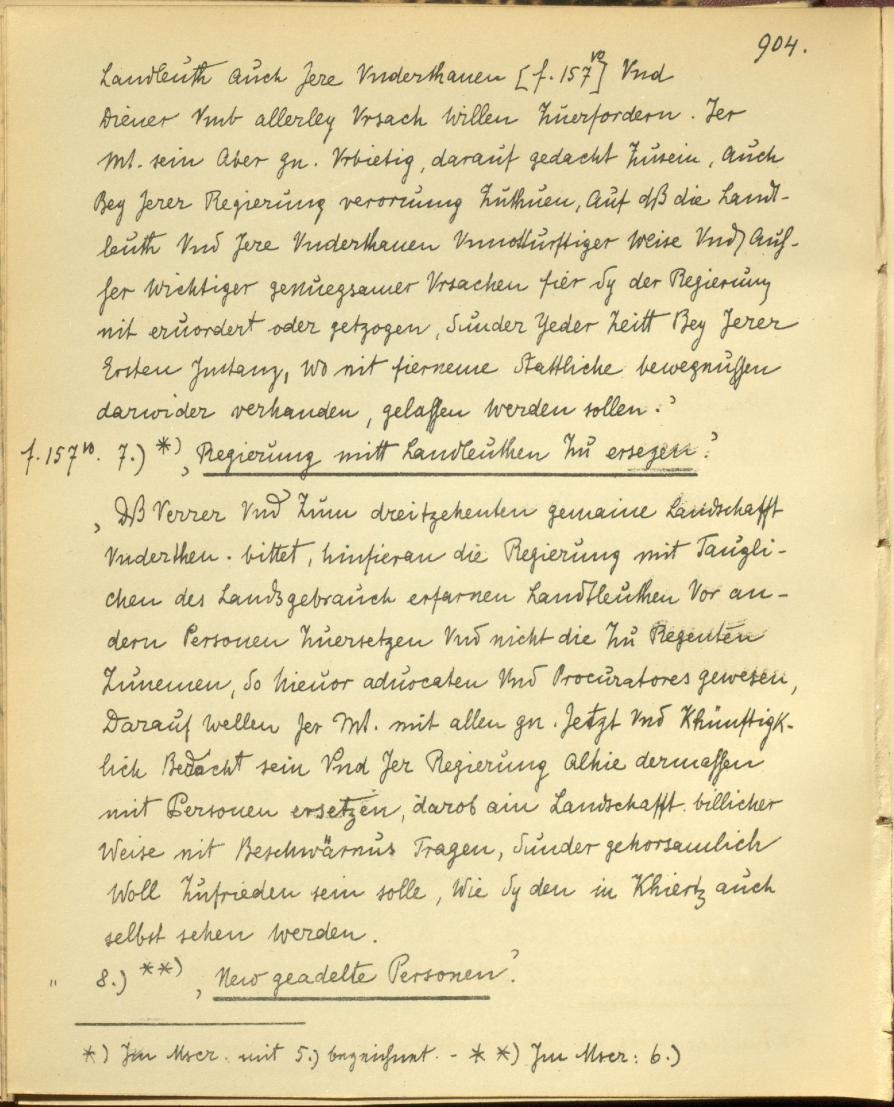 904.
Landleuth auch Jere Vnderthanen [f. 157vo] Vnd
Diener Vmb allerley Vrsach willen Zuerfordern. Jer
Mt. sein Aber gn. Vrbietig, darauf gedacht Zusein, Auch
Bey Jerer Regierung verornung Zuthuen, Auf dß die Landt-
leuth Vnd Jere Vnderthanen Vnnotturftiger weise Vnd Auf-
ser wichtiger genuegsamer Vrsachen fier Sy der Regierung
nit eruordert oder getzogen, Sunder Yeder Zeitt Bey Jerer
Ersten Instanz, Wo nit fierneme Stattliche bewegnussen
darwider verhanden, gelassen werden sollen.'
f. 157vo. 7.) *) ‚Regierung mitt Landleuthen Zu ersezen.'
‚Dß Verrer Vnd Zum dreitzehenten gemaine Landschafft
Vnderthen. bittet, hinfieran die Regierung mit Taugli-
chen des Landsgebrauch erfarnen Landtleuthen Vor an-
dern Personen Zuersetzen Vnd nicht die Zu Regenten
Zunemen, So hieuor aduocaten Vnd Procuratores gewesen,
Darauf wellen Jer Mt. mit allen gn. Jetzt Vnd Khünftigk-
lich Bedacht sein Vnd Jer Regierung Alhie dermassen
mit Personen ersetzen, darob ain Landschafft billicher
Weise nit Beschwärnus Tragen, Sunder gehorsamlich
Woll Zufrieden sein solle, Wie Sy den in Khiertz auch
selbst sehen werden.
" 8.) **) ‚New geadelte Personen'.
*) Im Mscr. mit 5.) bezeichnet. - **) Im Mscr: 6.)